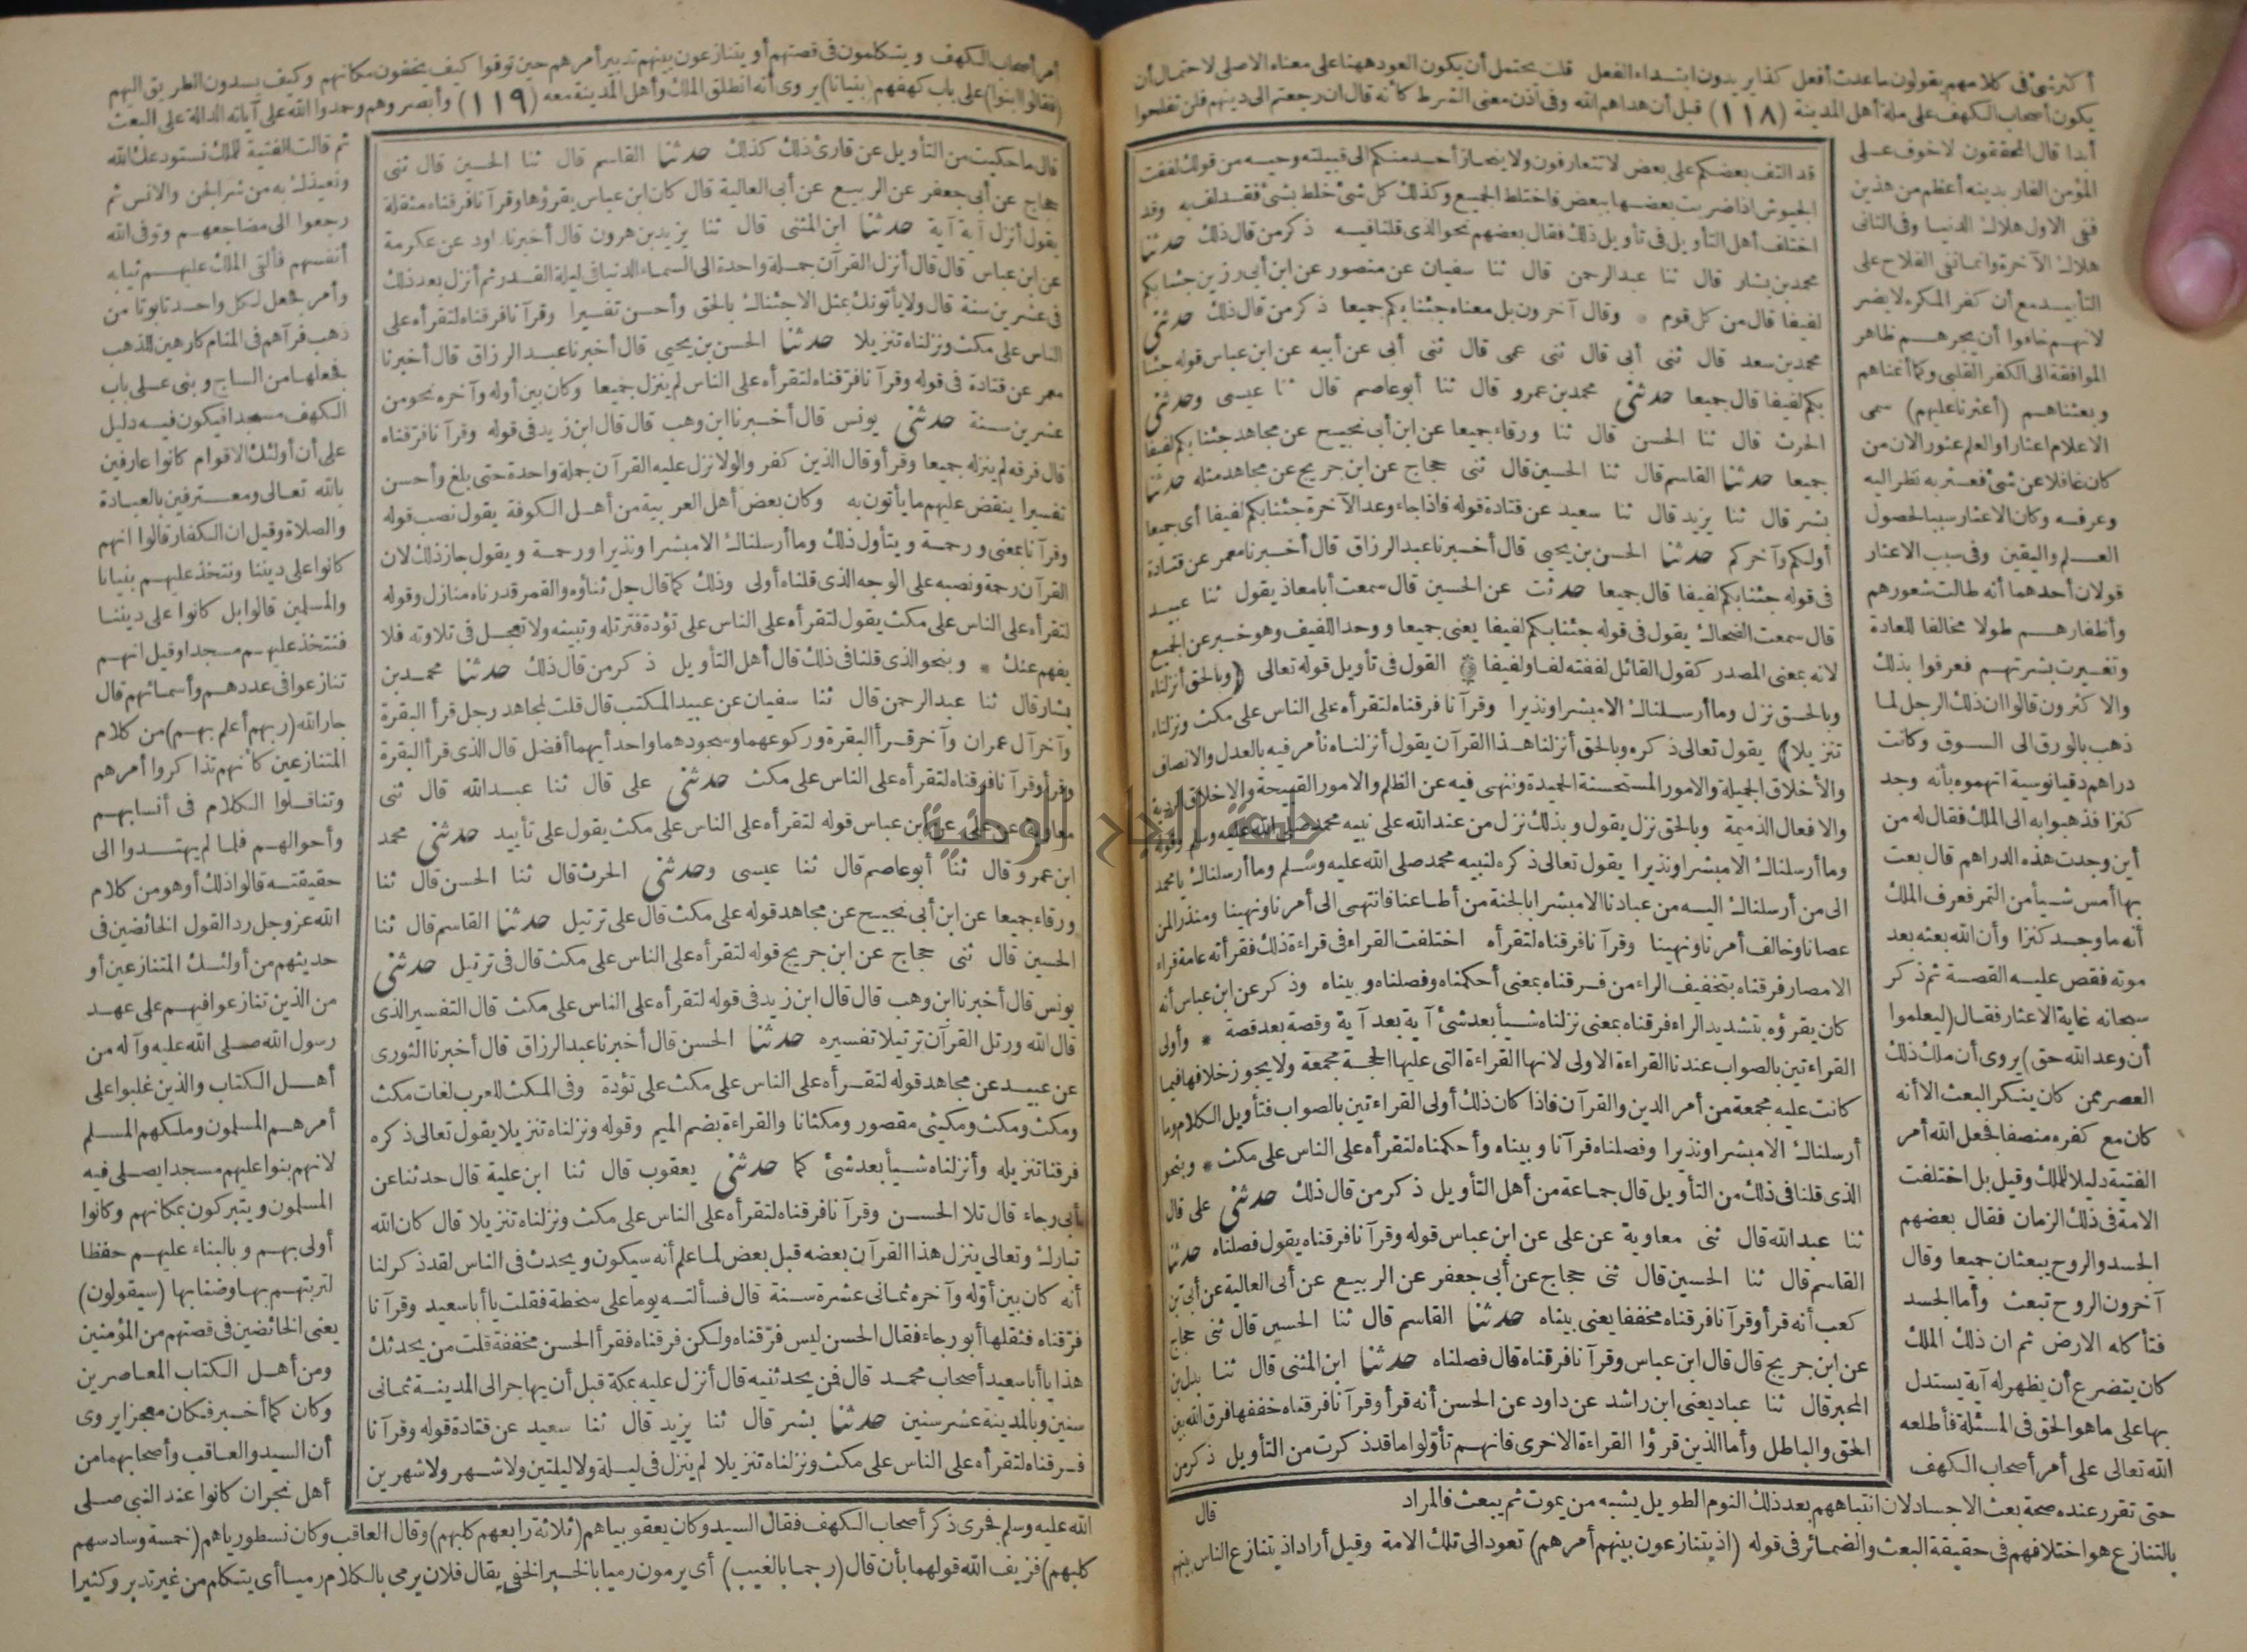 أكثر شئ فى كلامهم يقولون ما عدت أفعل كذا يريدون ابتداء الفعل قلت يحتمل أن يكون العود ههنا على معناه الاصلى لاحتمال أن
يكون أصحاب الكهف على ملة أهل المدينة (١١٨) قبل أن هداهم الله وفى اذن معنى الشرط كأنه قال ان رجعتم الى دينهم فلن تفلحوا
قد التف بعضكم على بعض لا تتعارفون ولا ينحاز أحد منكم الى قبيلته وحيه من قولك لففت
الجيوش اذا ضربت بعضها ببعض فاختلط الجميع وكذلك كل شئ خلط بشئ فقد لف به وقد
اختلف أهل التأويل فى تأويل ذلك فقال بعضهم نحو الذى قلنا فيه ذكر من قال ذلك حدثنا
محمد بن بشار قال ثنا عبد الرحمن قال ثنا سفيان عن منصور عن ابن أبى رزين جئنا بكم
لفيفا قال من كل قوم * وقال آخرون بل معناه جئنا بكم جميعا ذكر من قال ذلك حدثنى
محمد بن سعد قال ثنى أبى قال ثنى عمى قال ثنى أبى عن أبيه عن ابن عباس قوله جئنا
بكم لفيفا قال جميعا حدثنى محمد بن عمرو قال ثنا أبو عاصم قال ثنا عيسى وحدثنى
الحرث قال ثنا الحسن قال ثنا ورقاء جميعا عن ابن أبى نجيح عن مجاهد جئنا بكم لفيفا
جميعا حدثنا القاسم قال ثنا الحسين قال ثنى حجاج عن ابن جريج عن مجاهد مثله حدثنا
بشر قال ثنا يزيد قال ثنا سعيد عن قتادة قوله فاذا جاء وعد الآخرة جئنا بكم لفيفا أى جميعا
أولكم وآخركم حدثنا الحسن بن يحيى قال أخبرنا عبد الرزاق قال أخبرنا معمر عن قتادة
فى قوله جئنا بكم لفيفا قال جميعا حدثت عن الحسين قال سمعت أبا معاذ يقول ثنا عبيد
قال سمعت الضحاك يقول فى قوله جئنا بكم لفيفا يعنى جميعا ووحد اللفيف وهو خبر عن الجميع
لانه بمعنى المصدر كقول القائل لففته لفا ولفيفا * القول فى تأويل قوله تعالى (وبالحق أنزلناه
وبالحق نزل وما أرسلناك الا مبشرا ونذيرا وقرآنا فرقناه لتقرأه على الناس على مكث ونزلناه
تنزيلا) يقول تعالى ذكره وبالحق أنزلنا هذا القرآن يقول أنزلناه نأمر فيه بالعدل والانصاف
والأخلاق الجميلة والامور المستحسنة الحميدة وننهى فيه عن الظلم والامور القبيحة والاخلاق الردية
والافعال الذميمة وبالحق نزل يقول وبذلك نزل من عند الله على نبيه محمد صلى الله عليه وسلم وقوله
وما أرسلناك الا مبشرا ونذيرا يقول تعالى ذكره لنبيه محمد صلى الله عليه وسلم وما أرسلناك يا محمد
الى من أرسلناك اليه من عبادنا الا مبشرا بالجنة من أطاعنا فانتهى الى أمرنا ونهينا ومنذرا لمن
عصانا وخالف أمرنا ونهينا وقرآنا فرقناه لتقرأه اختلفت القراء فى قراءة ذلك فقرأته عامة قراء
الامصار فرقناه بتخفيف الراء من فرقناه بمعنى أحكمناه وفصلناه وبيناه وذكر عن ابن عباس أنه
كان يقرؤه بتشديد الراء فرقناه بمعنى نزلناه شيأ بعد شئ آية بعد آية وقصة بعد قصة * وأولى
القراءتين بالصواب عندنا القراءة الاولى لانها القراءة التى عليها الحجة مجمعة ولا يجوز خلافها فيما
كانت عليه مجمعة من أمر الدين والقرآن فاذا كان ذلك أولى القراءتين بالصواب فتأويل الكلام وما
أرسلناك الا مبشرا ونذيرا وفصلناه قرآنا وبيناه وأحكمناه لتقرأه على الناس على مكث * وبنحو
الذى قلنا فى ذلك من التأويل قال جماعة من أهل التأويل ذكر من قال ذلك حدثنى على قال
ثنا عبد الله قال ثنى معاوية عن على عن ابن عباس قوله وقرآنا فرقناه يقول فصلناه حدثنا
القاسم قال ثنا الحسين قال ثنى حجاج عن أبى جعفر عن الربيع عن أبى العالية عن أبى بن
كعب أنه قرأ وقرآنا فرقناه مخففا يعنى بيناه حدثنا القاسم قال ثنا الحسين قال ثنى حجاج
عن ابن جريج قال قال ابن عباس وقرآنا فرقناه قال فصلناه حدثنا ابن المثنى قال ثنا بدل بن
المحبر قال ثنا عباد يعنى ابن راشد عن داود عن الحسن أنه قرأ وقرآنا فرقناه خففها فرق الله بين
الحق والباطل وأما الذين قرؤا القراءة الاخرى فانهم تأولوا ما قد ذكرت من التأويل ذكر من
قال
أبدا قال المحققون لا خوف على
المؤمن الفار بدينه أعظم من هذين
ففى الاول هلاك الدنيا وفى الثانى
هلاك الآخرة وانما نفى الفلاح على
التأبيد مع أن كفر المكره لا يضر
لانهم خافوا أن يجرهم ظاهر
الموافقة الى الكفر القلبى وكما أنمناهم
وبعثناهم (أعثرنا عليهم) سمى
الاعلام اعثارا والعلم عثورا لان من
كان غافلا عن شئ فعثر به نظر اليه
وعرفه وكان الاعثار سببا لحصول
العلم واليقين وفى سبب الاعثار
قولان أحدهما أنه طالت شعورهم
وأظفارهم طولا مخالفا للعادة
وتغيرت بشرتهم فعرفوا بذلك
والاكثرون قالوا ان ذلك الرجل لما
ذهب بالورق الى السوق وكانت
دراهم دقيانوسية اتهموه بأنه وجد
كنزا فذهبوا به الى الملك فقال له من
أين وجدت هذه الدراهم قال بعت
بها أمس شيأ من التمر فعرف الملك
أنه ما وجد كنزا وأن الله بعثه بعد
موته فقص عليه القصة ثم ذكر
سبحانه غاية الاعثار فقال (ليعلموا
أن وعد الله حق) يروى أن ملك ذلك
العصر ممن كان ينكر البعث الا أنه
كان مع كفره منصفا فجعل الله أمر
الفتية دليلا للملك وقيل بل اختلفت
الامة فى ذلك الزمان فقال بعضهم
الجسد والروح يبعثان جميعا وقال
آخرون الروح تبعث وأما الجسد
فتأكله الارض ثم ان ذلك الملك
كان يتضرع أن يظهر له آية يستدل
بها على ما هو الحق فى المسئلة فأطلعه
الله تعالى على أمر أصحاب الكهف
حتى تقرر عنده صحة بعث الاجساد لان انتباههم بعد ذلك النوم الطويل يشبه من يموت ثم يبعث فالمراد
بالتنازع هو اختلافهم فى حقيقة البعث والضمائر فى قوله (اذ يتنازعون بينهم أمرهم) تعود الى تلك الامة وقيل أراد اذ يتنازع الناس بينهم
أمر أصحاب الكهف ويتكلمون فى قصتهم أو يتنازعون بينهم تدبير أمرهم حين توفوا كيف يخفون مكانهم وكيف يسدون الطريق اليهم
(فقالوا ابنوا) على باب كهفهم (بنيانا) يروى أنه انطلق الملك وأهل المدينة معه (١١٩) وأبصروهم وحمدوا الله على آياته الدالة على البعث
قال ما حكيت من التأويل عن قارئ ذلك كذلك حدثنا القاسم قال ثنا الحسين قال ثنى
حجاج عن أبى جعفر عن الربيع عن أبى العالية قال كان ابن عباس يقرؤها وقرآنا فرقناه مثقلة
يقول أنزل آية آية حدثنا ابن المثنى قال ثنا يزيد بن هرون قال أخبرنا داود عن عكرمة
عن ابن عباس قال قال أنزل القرآن جملة واحدة الى السماء الدنيا فى ليلة القدر ثم أنزل بعد ذلك
فى عشرين سنة قال ولا يأتونك بمثل الا جئناك بالحق وأحسن تفسيرا وقرآنا فرقناه لتقرأه على
الناس على مكث ونزلناه تنزيلا حدثنا الحسن بن يحيى قال أخبرنا عبد الرزاق قال أخبرنا
معمر عن قتادة فى قوله وقرآنا فرقناه لتقرأه على الناس لم ينزل جميعا وكان بين أوله وآخره نحو من
عشرين سنة حدثنى يونس قال أخبرنا ابن وهب قال قال ابن زيد فى قوله وقرآنا فرقناه
قال فرقه لم ينزله جميعا وقرأ وقال الذين كفروا لولا نزل عليه القرآن جملة واحدة حتى بلغ وأحسن
تفسيرا ينقض عليهم ما يأتون به وكان بعض أهل العربية من أهل الكوفة يقول نصب قوله
وقرآنا بمعنى ورحمة ويتأول ذلك وما أرسلناك الا مبشرا ونذيرا ورحمة ويقول جاز ذلك لان
القرآن رحمة ونصبه على الوجه الذى قلناه أولى وذلك كما قال جل ثناؤه والقمر قدرناه منازل وقوله
لتقرأه على الناس على مكث يقول لتقرأه على الناس على تؤدة فترتله وتبينه ولا تعجل فى تلاوته فلا
يفهم عنك * وبنحو الذى قلنا فى ذلك قال أهل التأويل ذكر من قال ذلك حدثنا محمد بن
بشار قال ثنا عبد الرحمن قال ثنا سفيان عن عبيد المكتب قال قلت لمجاهد رجل قرأ البقرة
وآخر آل عمران وآخر قرأ البقرة وركوعهما وسجودهما واحد أيهما أفضل قال الذى قرأ البقرة
وقرأ وقرآنا فرقناه لتقرأه على الناس على مكث حدثنى على قال ثنا عبد الله قال ثنى
معاوية عن على عن ابن عباس قوله لتقرأه على الناس على مكث يقول على تأييد حدثنى محمد
ابن عمرو قال ثنا أبو عاصم قال ثنا عيسى وحدثنى الحرث قال ثنا الحسن قال ثنا
ورقاء جميعا عن ابن أبى نجيح عن مجاهد قوله على مكث قال على ترتيل حدثنا القاسم قال ثنا
الحسين قال ثنى حجاج عن ابن جريج قوله لتقرأه على الناس على مكث قال فى ترتيل حدثنى
يونس قال أخبرنا ابن وهب قال قال ابن زيد فى قوله لتقرأه على الناس على مكث قال التفسير الذى
قال الله ورتل القرآن ترتيلا تفسيره حدثنا الحسن قال أخبرنا عبد الرزاق قال أخبرنا الثورى
عن عبيد عن مجاهد قوله لتقرأه على الناس على مكث على تؤدة وفى المكث للعرب لغات مكث
ومكث ومكث ومكيثى مقصور ومكثانا والقراءة بضم الميم وقوله ونزلناه تنزيلا يقول تعالى ذكره
فرقنا تنزيله وأنزلناه شيأ بعد شئ كما حدثنى يعقوب قال ثنا ابن علية قال حدثنا عن
أبى رجاء قال تلا الحسن وقرآنا فرقناه لتقرأه على الناس على مكث ونزلناه تنزيلا قال كان الله
تبارك وتعالى ينزل هذا القرآن بعضه قبل بعض لما علم أنه سيكون ويحدث فى الناس لقد ذكر لنا
أنه كان بين أوله وآخره ثمانى عشرة سنة قال فسألته يوما على سخطة فقلت يا أبا سعيد وقرآنا
فرقناه فثقلها أبو رجاء فقال الحسن ليس فرقناه ولكن فرقناه فقرأ الحسن مخففة قلت من يحدثك
هذا يا أبا سعيد أصحاب محمد قال فمن يحدثنيه قال أنزل عليه بمكة قبل أن يهاجر الى المدينة ثمانى
سنين وبالمدينة عشر سنين حدثنا بشر قال ثنا يزيد قال ثنا سعيد عن قتادة قوله وقرآنا
فرقناه لتقرأه على الناس على مكث ونزلناه تنزيلا لم ينزل فى ليلة ولا ليلتين ولا شهر ولا شهرين
ثم قالت الفتية للملك نستودعك الله
ونعيذك به من شر الجن والانس ثم
رجعوا الى مضاجعهم وتوفى الله
أنفسهم فألقى الملك عليهم ثيابه
وأمر فجعل لكل واحد تابوتا من
ذهب فرآهم فى المنام كارهين للذهب
فجعلها من الساج وبنى على باب
الكهف مسجدا فيكون فيه دليل
على أن أولئك الاقوام كانوا عارفين
بالله تعالى ومعترفين بالعبادة
والصلاة وقيل ان الكفار قالوا انهم
كانوا على ديننا ونتخذ عليهم بنيانا
والمسلمين قالوا بل كانوا على ديننا
فنتخذ عليهم مسجدا وقيل انهم
تنازعوا فى عددهم وأسمائهم قال
جار الله (ربهم أعلم بهم) من كلام
المتنازعين كأنهم تذاكروا أمرهم
وتناقلوا الكلام فى أنسابهم
وأحوالهم فلما لم يهتدوا الى
حقيقته قالوا ذلك أو هو من كلام
الله عز وجل رد القول الخائضين فى
حديثهم من أولئك المتنازعين أو
من الذين تنازعوا فيهم على عهد
رسول الله صلى الله عليه وآله من
أهل الكتاب والذين غلبوا على
أمرهم المسلمون وملكهم المسلم
لانهم بنوا عليهم مسجدا يصلى فيه
المسلمون ويتبركون بمكانهم وكانوا
أولى بهم وبالبناء عليهم حفظا
لتربتهم بها وضنا بها (سيقولون)
يعنى الخائضين فى قصتهم من المؤمنين
ومن أهل الكتاب المعاصرين
وكان كما أخبر فكان معجزا يروى
أن السيد والعاقب وأصحابهما من
أهل نجران كانوا عند النبى صلى
الله عليه وسلم فجرى ذكر أصحاب الكهف فقال السيد وكان يعقوبيا هم (ثلاثة رابعهم كلبهم) وقال العاقب وكان نسطوريا هم (خمسة وسادسهم
كلبهم) فزيف الله قولهما بأن قال (رجما بالغيب) أى يرمون رميا بالخبر الخفى يقال فلان يرمى بالكلام رميا أى يتكلم من غير تدبر وكثيرا
جامعة النجاح الوطنية